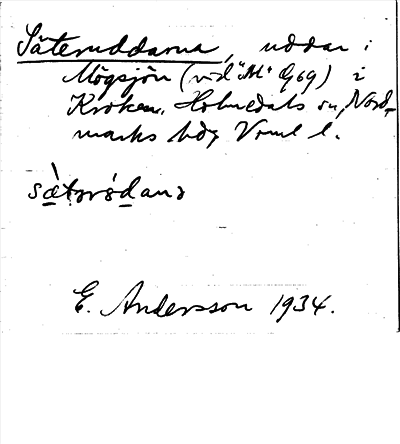 Säteruddarna, uddar i
Mögsjön (vid "M" G69) i
Kroken, Holmedals sn, Nord-
marks hdg Vrml l.
E. Andersson 1934.